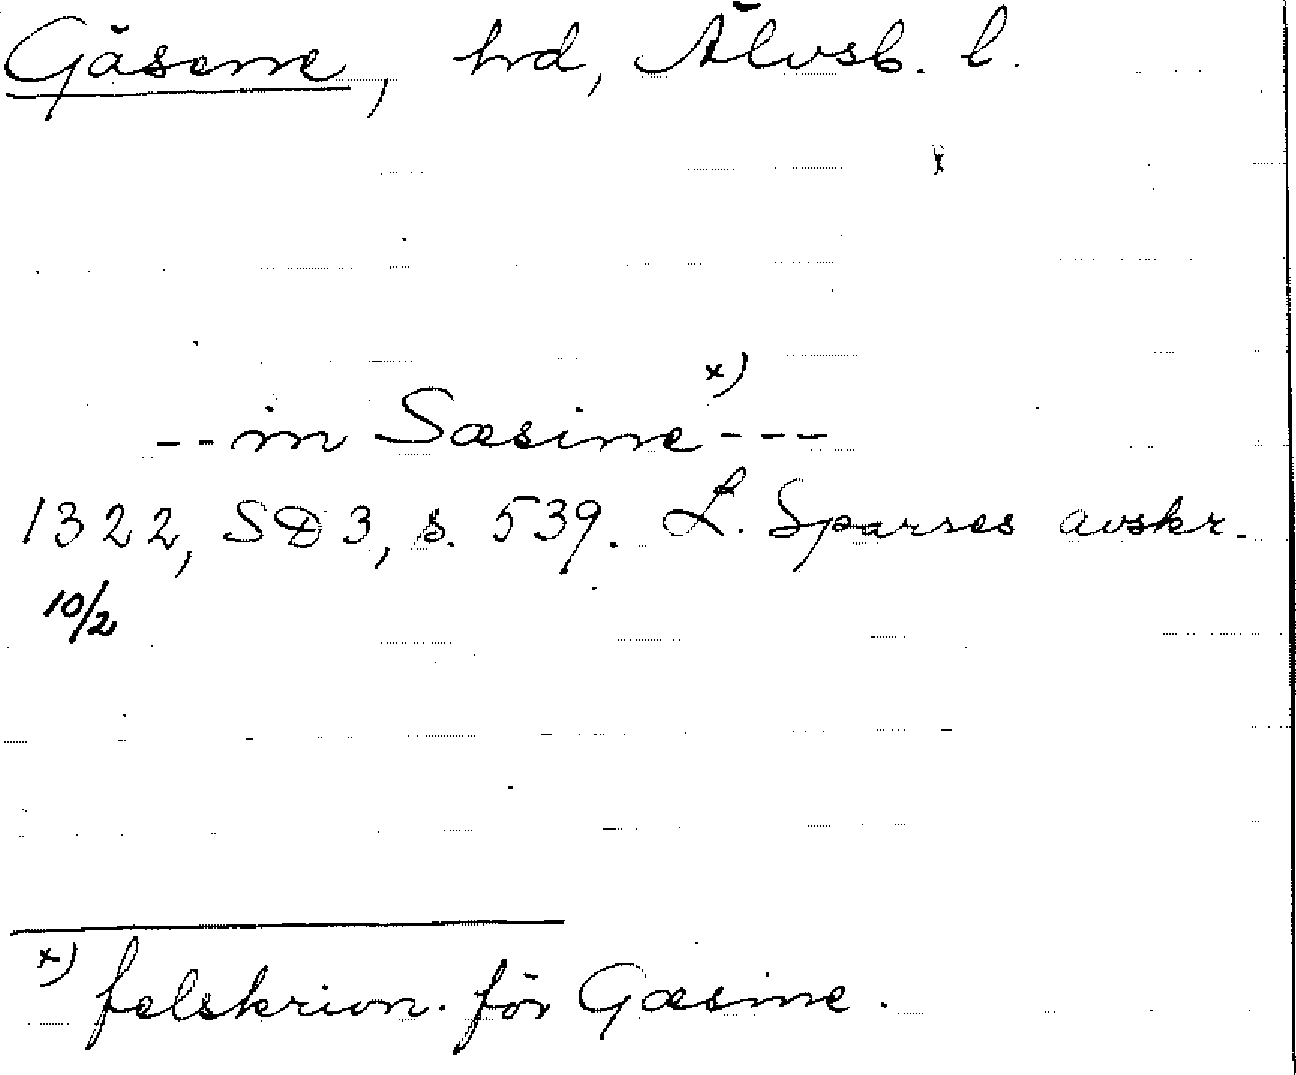 Gäsene, hd, Älvsb. l.
x
-- in Sæsine x) ---
1322, SD 3, s. 539. L. Sparres avskr.
10/2
x) felskrivn. för Gæsine.